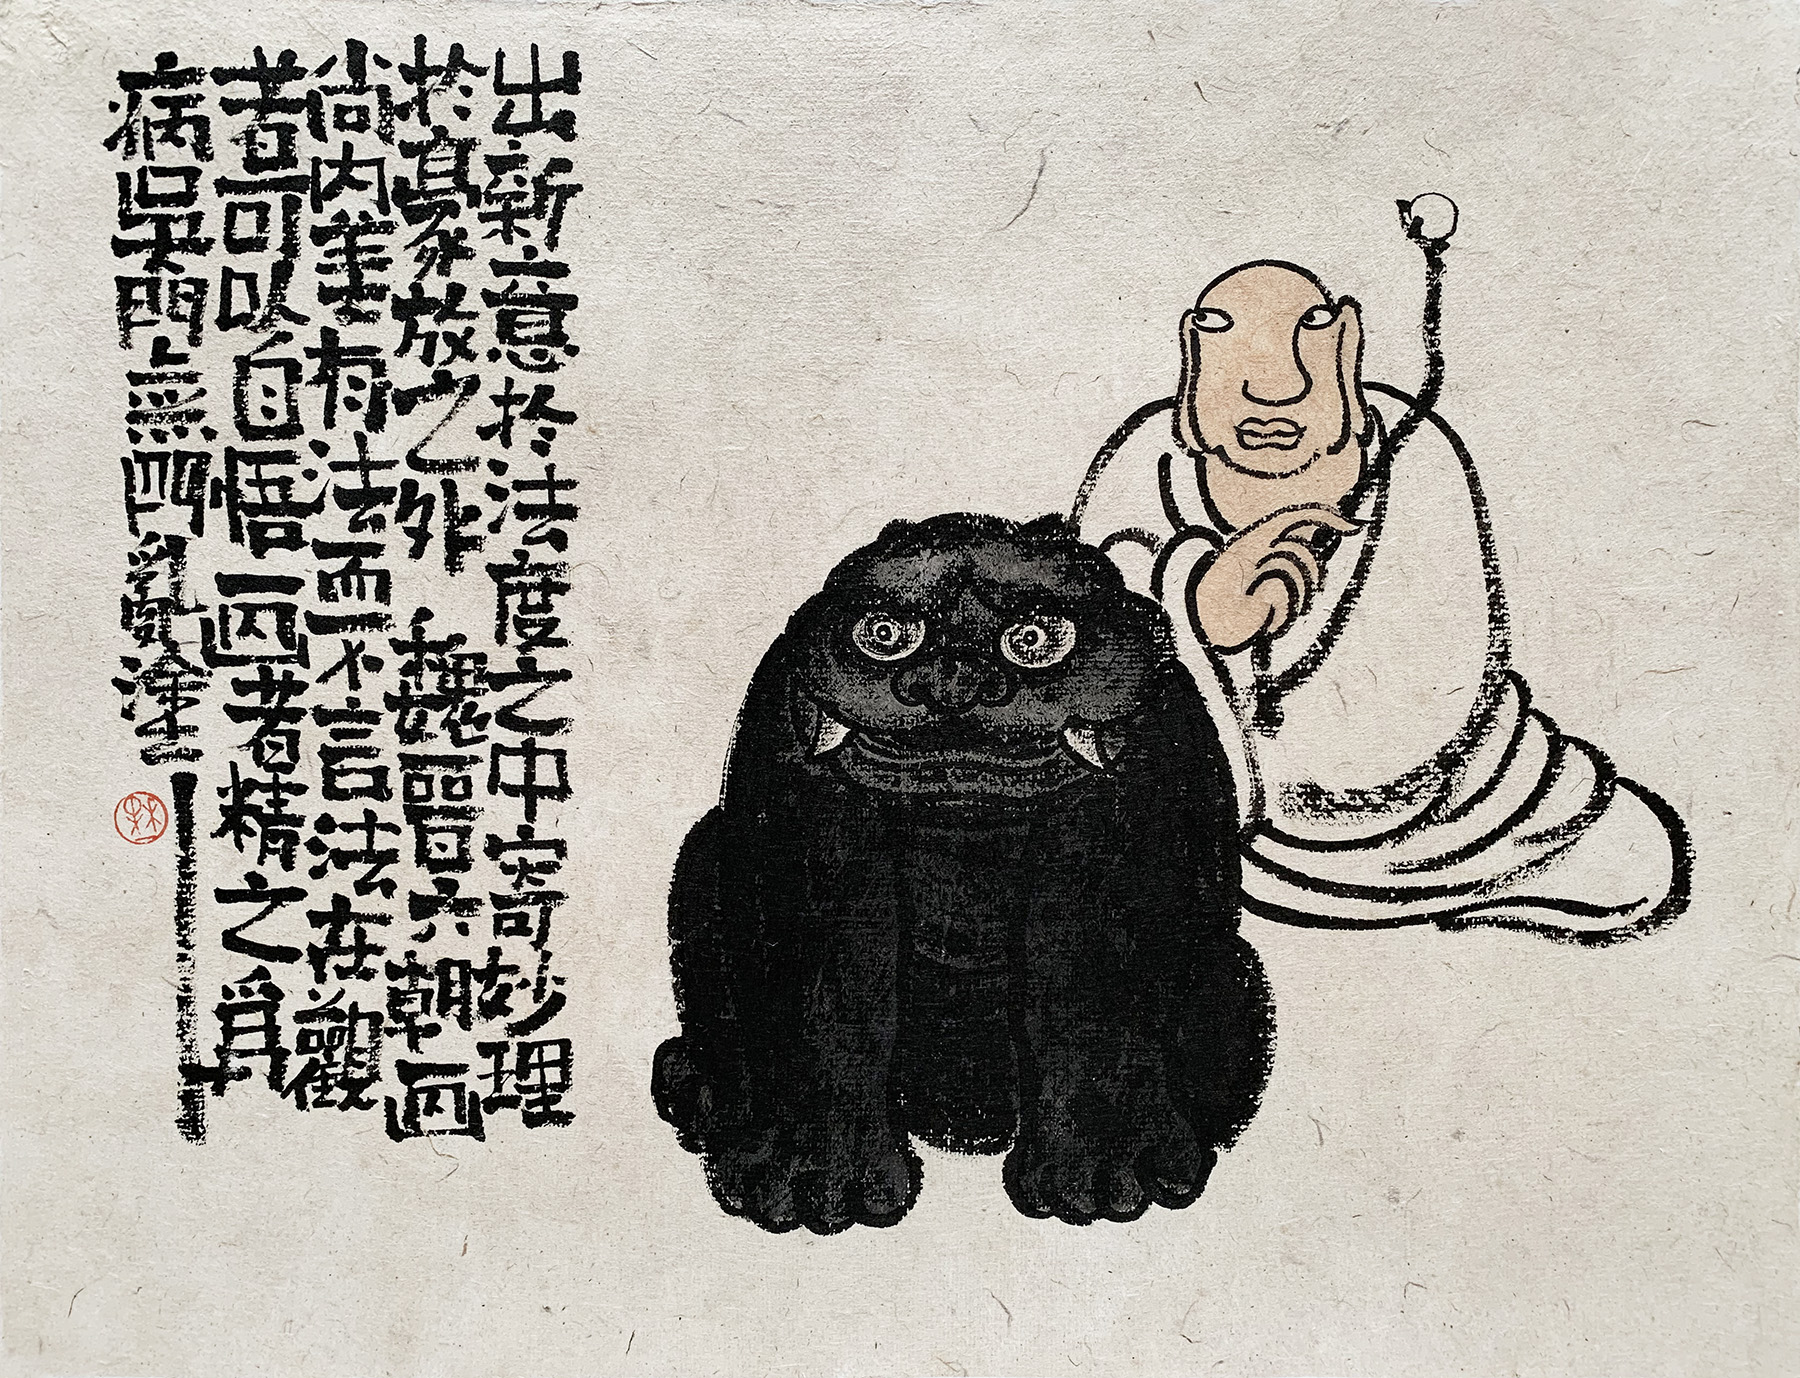 出新意於法度之中寄妙理
於豪放之外 魏晉六朝画
尚内美有法而不言法在觀
者可以自悟画者精之爲
病吳門無亂塗